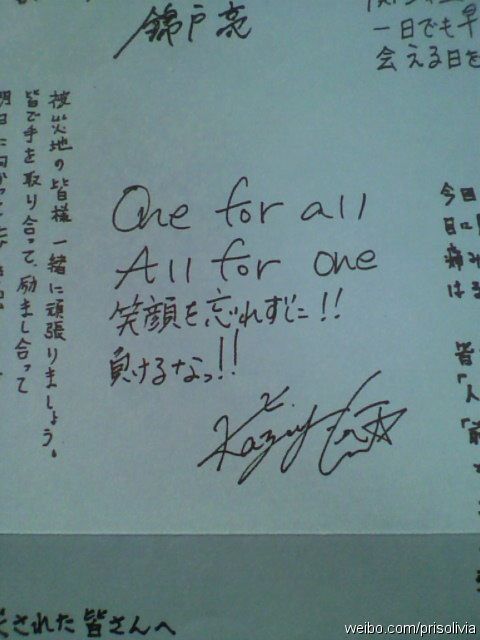 錦戸亮
一日でも早
会える日を
被災地の皆様 一緒に頑張りましょう。
皆で手を取り合って、励まし合って
One for all
All for one
笑顔を忘れずに!!
負けるなっ!!
今回
痛み
は
皆
「人
「前
された皆さんへ
weibo.com/prisolivia